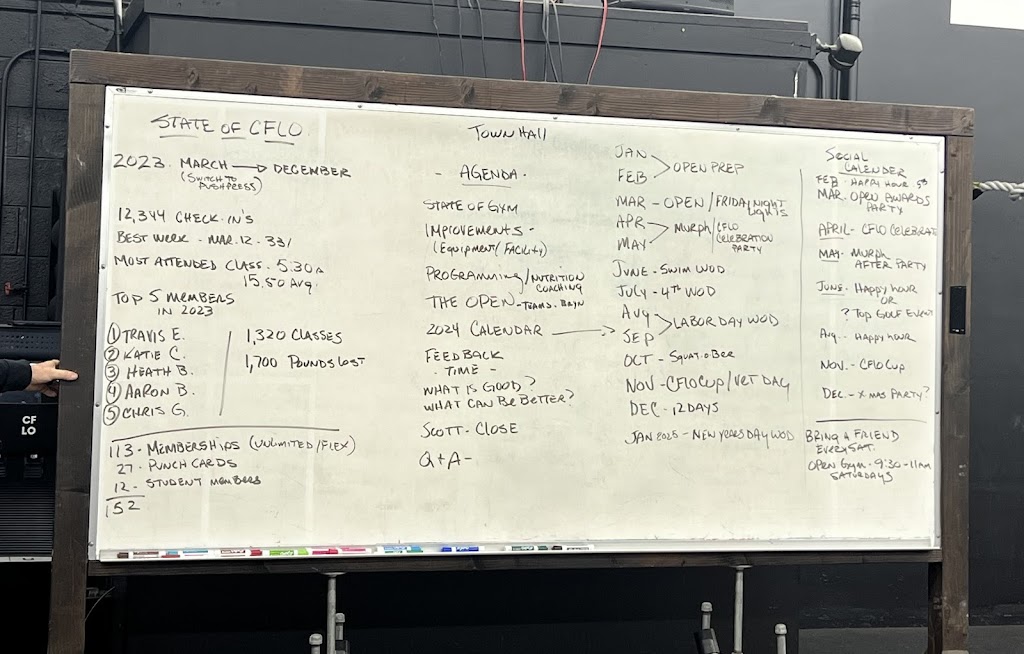 STATE OF CFLO
2023. MARCH → DECEMBER
(SWITCH TO
PUSHPRESS)
12,344 CHECK-IN'S
BEST WEEK - MAR. 12 - 331
MOST ATTENDED CLASS. 5:30A
15.50 AVG.
TOP 5 MEMBERS
IN 2023
① TRAVIS E.
② KATIE C.
③ HEATH B.
④ AARON B.
⑤ CHRIS G.
1,320 CLASSES
1,700 POUNDS LOST
113 - MEMBERSHIPS (UNLIMITED/FLEX)
27 - PUNCH CARDS
12 - STUDENT MEMBERS
152
TOWN HALL
- AGENDA -
STATE OF GYM
IMPROVEMENTS -
(EQUIPMENT/FACILITY)
PROGRAMMING/NUTRITION
COACHING
THE OPEN - TEAMS. BRYN
2024 CALENDAR →
FEEDBACK
- TIME -
WHAT IS GOOD?
WHAT CAN BE BETTER?
SCOTT - CLOSE
Q + A -
JAN
FEB > OPEN PREP
MAR - OPEN / FRIDAY NIGHT
LIGHTS
APR
MAY > MURPH / CFLO
CELEBRATION
PARTY
JUNE - SWIM WOD
JULY - 4TH WOD
AUG
SEP > LABOR DAY WOD
OCT - SQUATOBER
NOV - CFLO CUP / VET DAY
DEC - 12 DAYS
JAN 2025 - NEW YEARS DAY WOD
SOCIAL
CALENDER
FEB - HAPPY HOUR 5th
MAR. OPEN AWARDS
PARTY
APRIL - CFLO CELEBRAT
MAY - MURPH
AFTER PARTY
JUNE - HAPPY HOUR
OR
? TOP GOLF EVENT
AUG - HAPPY HOUR
NOV. - CFLO CUP
DEC. - XMAS PARTY?
BRING A FRIEND
EVERY SAT.
OPEN GYM - 9:30 - 11AM
SATURDAYS
CF
LO